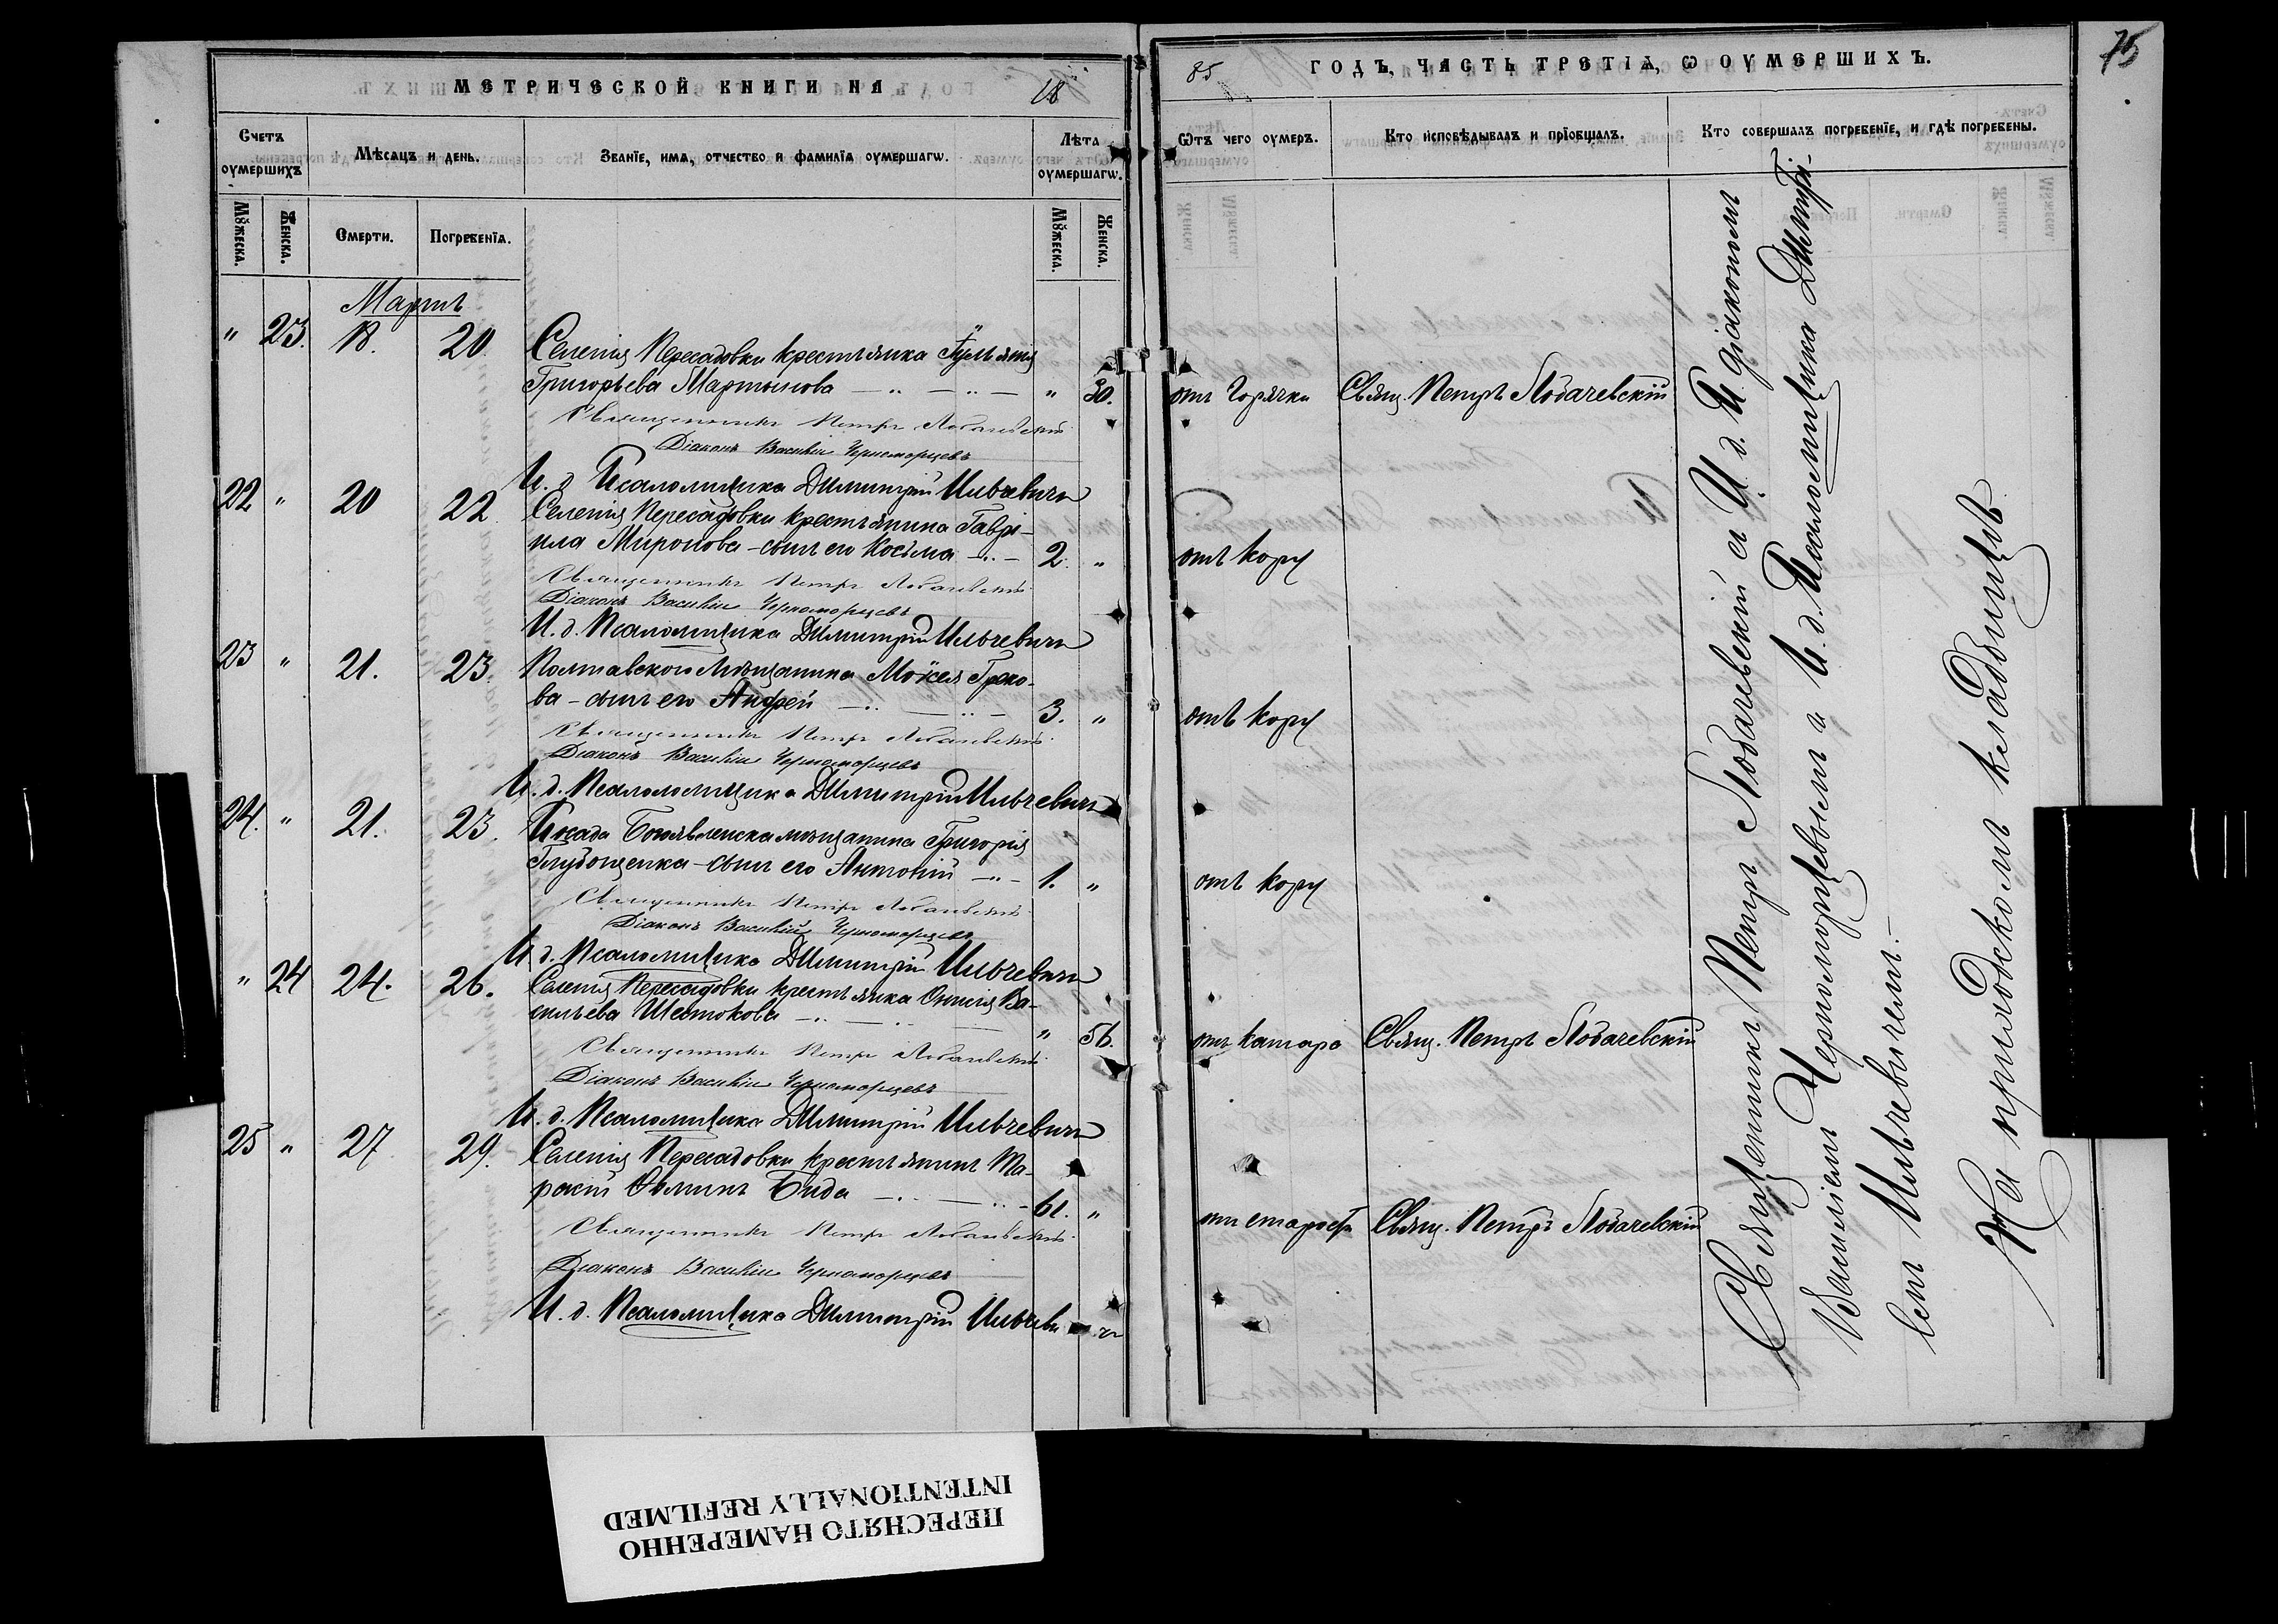 МЕТРИЧЕСКОЙ КНИГИ НА 18
Счетъ оумершихъ
Мѣсяцъ и день.
Званіе, имя, отчество и фамилія оумершагѡ.
Лѣта оумершагѡ.
Мꙋжеска. Женска. Смерти. Погребенїѧ. Мꙋжеска. Женска.
Мартъ
" 23. 18. 20. Селенія Пересадовки крестьянка
Григорьева Мартынова " 30.
Священникъ Петръ Лобачевскій
Діаконъ Василій Черноморцевъ
И. д. Псаломщика Димитрій Ильчевичъ
22 " 20 22. Селенія Пересадовки крестьянина Гаврі-
ила Миронова - сынъ его Косьма 2. "
Священникъ Петръ Лобачевскій
Діаконъ Василій Черноморцевъ
И. д. Псаломщика Димитрій Ильчевичъ
23 " 21. 23. Полтавскаго мѣщанина Моѵсея Греко-
ва - сынъ его Андрей 3. "
Священникъ Петръ Лобачевскій
Діаконъ Василій Черноморцевъ
И. д. Псаломщика Димитрій Ильчевичъ
24. " 21. 23. Посада Богоявленска мѣщанина Григорія
сынъ его Антоній 1. "
Священникъ Петръ Лобачевскій
Діаконъ Василій Черноморцевъ
И. д. Псаломщика Димитрій Ильчевичъ
" 24 24. 26. Селенія Пересадовки крестьянка Ва-
сильева Шестокова " 56.
Священникъ Петръ Лобачевскій
Діаконъ Василій Черноморцевъ
И. д. Псаломщика Димитрій Ильчевичъ
25 " 27 29. Селенія Пересадовки крестьянинъ Та-
расій Ѳоминъ Бида 61. "
Священникъ Петръ Лобачевскій
Діаконъ Василій Черноморцевъ
И. д. Псаломщика Димитрій Ильчевичъ
85 ГОДЪ, ЧАСТЬ ТРЕТІѦ, Ѡ ОУМЕРШИХЪ.
75
Ѿтъ чего оумеръ.
Кто исповѣдывалъ и прїобщалъ.
Кто совершалъ погребенїе, и гдѣ погребены.
отъ горячки Свящ. Петръ Лобачевскій
отъ кору
отъ кору
отъ кору
отъ катара Свящ. Петръ Лобачевскій
отъ старости Свящ. Петръ Лобачевскій
Священникъ Петръ Лобачевскій съ И. д. діакономъ
Василіемъ Черноморцевымъ и И. д. Псаломщика Дмитрі-
емъ Ильчевичемъ.
На приходскомъ кладбищѣ
ПЕРЕСНЯТО НАМЕРЕННО
INTENTIONALLY REFILMED